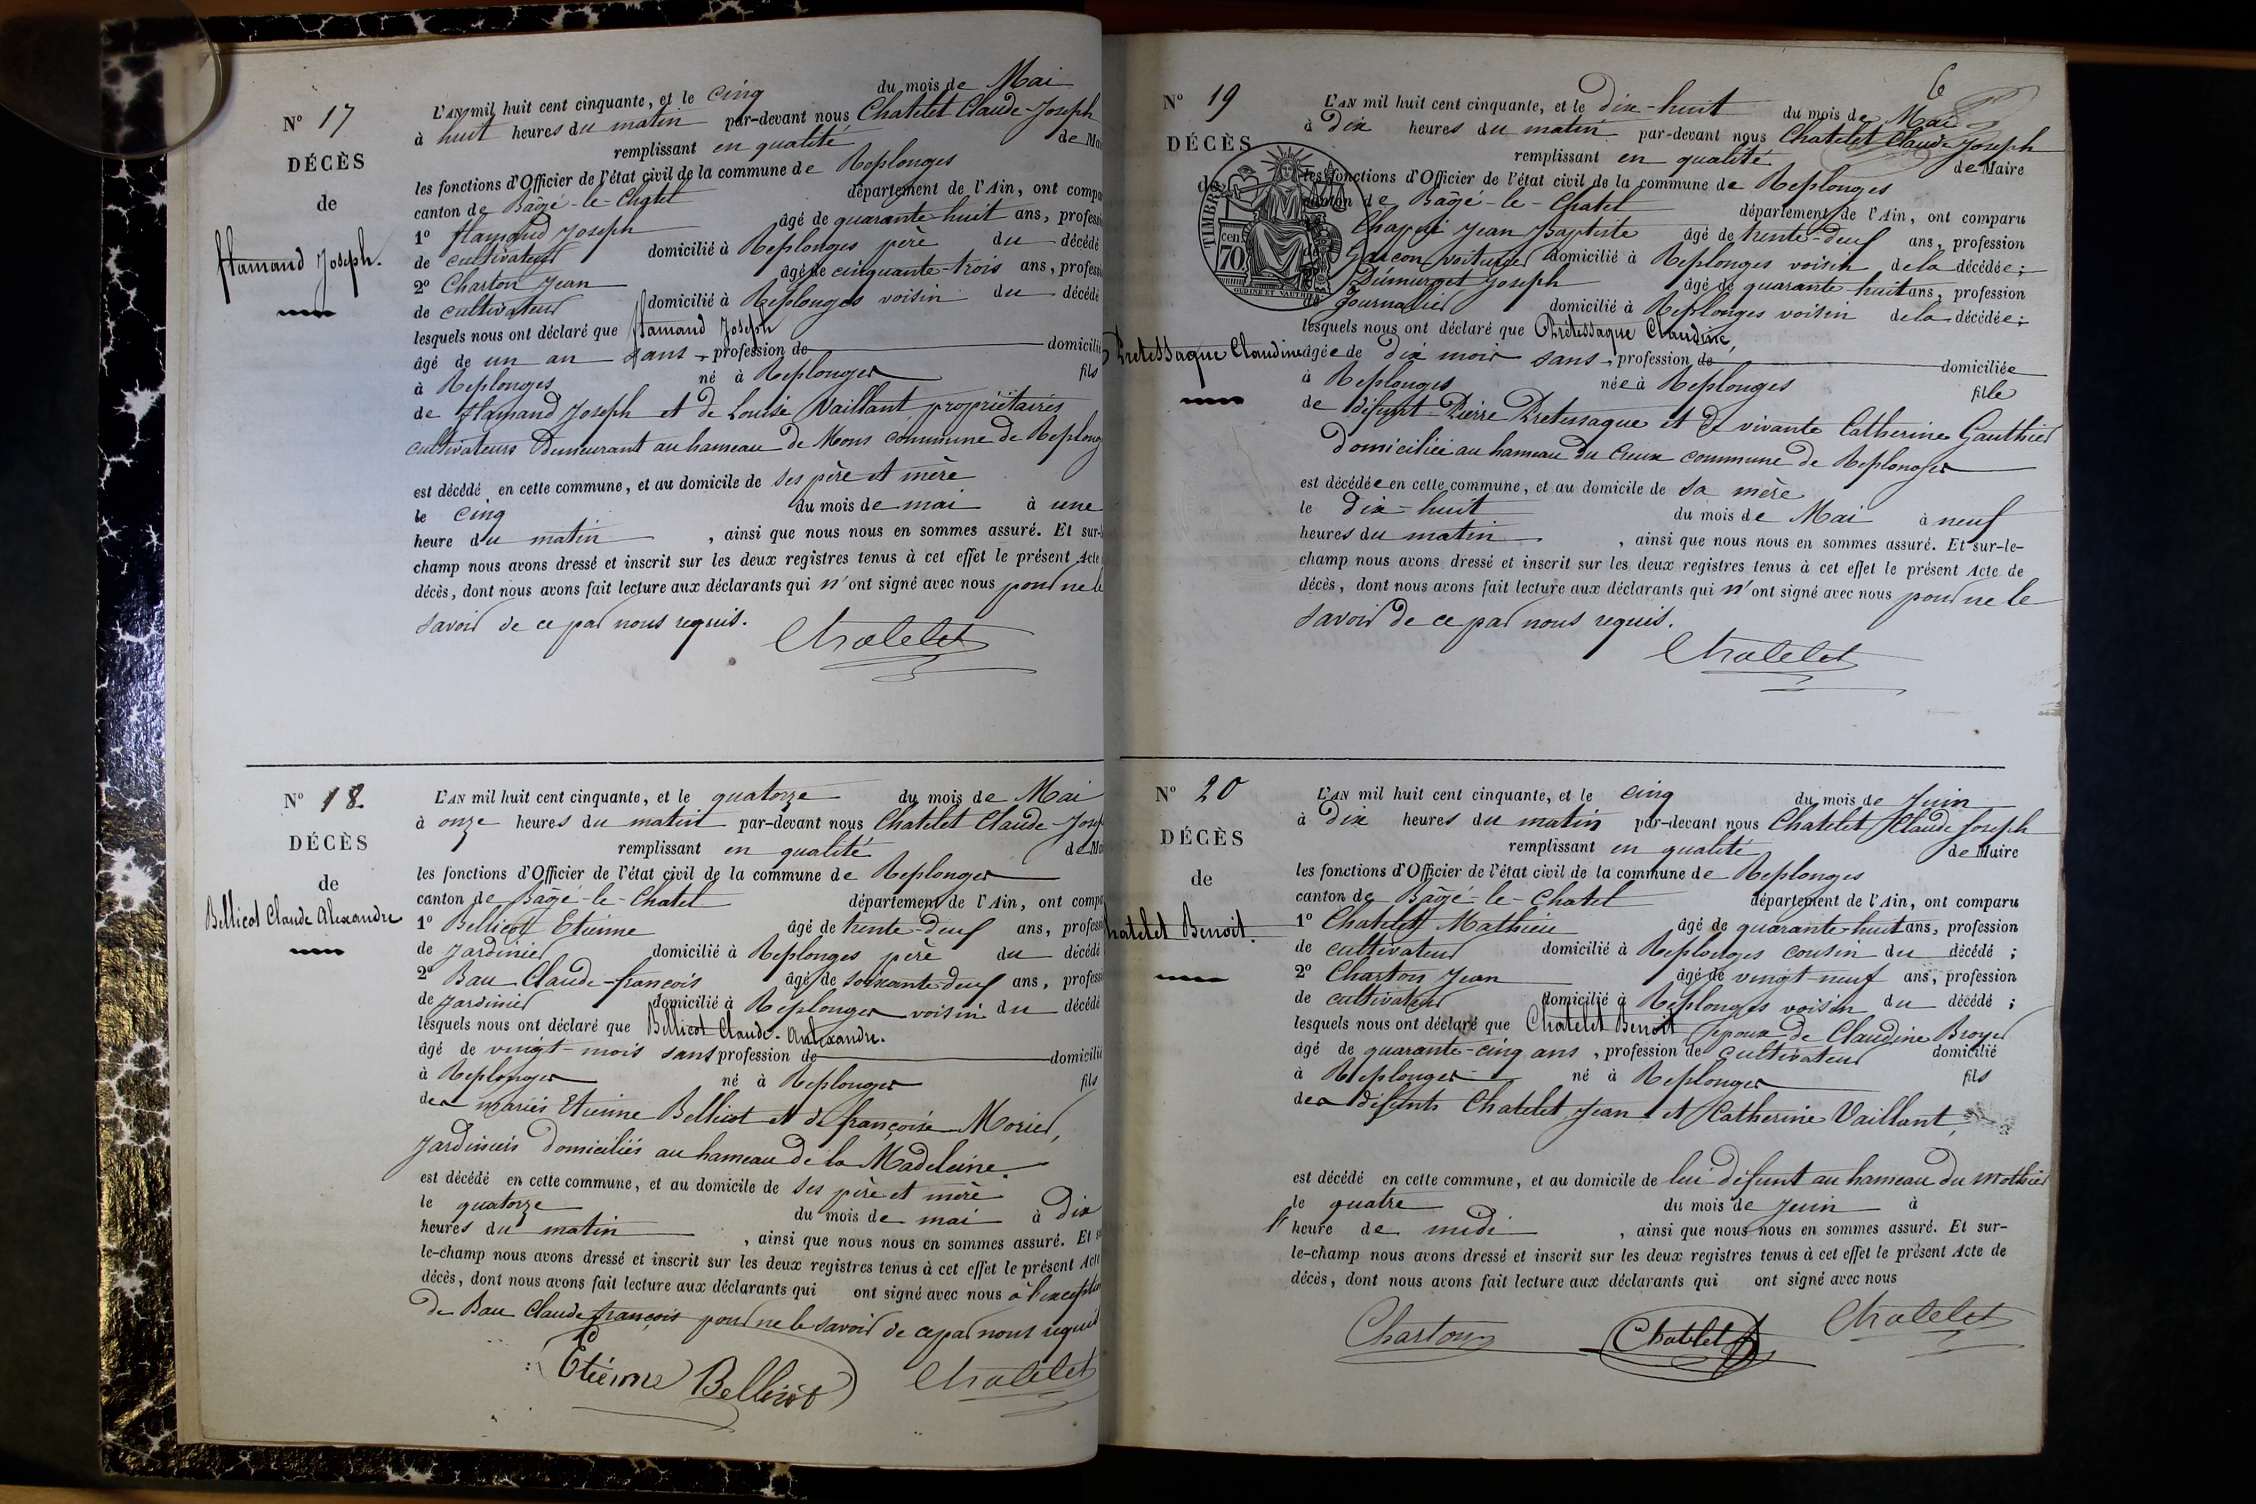 N° 17
DÉCÈS
de
Hamand Joseph.
L'AN mil huit cent cinquante, et le cinq du mois de Mai
à huit heures du matin par-devant nous Chatelet Claude-Joseph
remplissant en qualité de Ma
les fonctions d'Officier de l'état civil de la commune de Replonges
canton de Bâgé-le-Chatel département de l'Ain, ont compa
1° Hamand Joseph âgé de quarante-huit ans, professi
de cultivateur domicilié à Replonges père du décédé
2° Charton Jean âgé de cinquante-trois ans, professi
de cultivateur domicilié à Replonges voisin du décédé
lesquels nous ont déclaré que Hamand Joseph
âgé de un an sans profession de domicilié
à Replonges né à Replonges fils
de Hamand Joseph et de Louise Vaillant propriétaires
cultivateurs Demeurant au hameau de Mons commune de Replong
est décédé en cette commune, et au domicile de ses père et mère
le cinq du mois de mai à une
heure du matin , ainsi que nous nous en sommes assuré. Et sur-
champ nous avons dressé et inscrit sur les deux registres tenus à cet effet le présent Acte
décès, dont nous avons fait lecture aux déclarants qui n'ont signé avec nous pour ne le
savoir de ce par nous requis.
Chatelet
N° 18.
DÉCÈS
de
Bellicot Claude Alexandre
L'AN mil huit cent cinquante, et le quatorze du mois de Mai
à onze heures du matin par-devant nous Chatelet Claude-Josep
remplissant en qualité de Ma
les fonctions d'Officier de l'état civil de la commune de Replonges
canton de Bâgé-le-Chatel département de l'Ain, ont compa
1° Bellicot Etienne âgé de trente-deux ans, professi
de Jardinier domicilié à Replonges père du décédé
2° Bau Claude-françois âgé de soixante-deux ans, professi
de Jardinier domicilié à Replonges voisin du décédé
lesquels nous ont déclaré que Bellicot Claude-Alexandre.
âgé de vingt-mois sans profession de domicilié
à Replonges né à Replonges fils
des mariés Etienne Bellicot et de françoise Morier,
Jardiniers domiciliés au hameau de la Madeleine
est décédé en cette commune, et au domicile de ses père et mère
le quatorze du mois de mai à dix
heures du matin , ainsi que nous nous en sommes assuré. Et s
le-champ nous avons dressé et inscrit sur les deux registres tenus à cet effet le présent Acte
décès, dont nous avons fait lecture aux déclarants qui ont signé avec nous à l'exception
de Bau Claude françois pour ne le savoir de ce par nous requis
Etienne Bellicot Chatelet
6
N° 19
DÉCÈS
de
Pretessaque Claudine
TIMBRE
cen. 70
L'AN mil huit cent cinquante, et le dix-huit du mois de Mai
à Dix heures du matin par-devant nous Chatelet Claude Joseph
remplissant en qualité de Maire
les fonctions d'Officier de l'état civil de la commune de Replonges
canton de Bâgé-le-Chatel département de l'Ain, ont comparu
Chapui Jean Baptiste âgé de trente-deux ans, profession
Garçon voiturier domicilié à Replonges voisin de la décédée;
Dumurget Joseph âgé de quarante-huit ans, profession
de Journalier domicilié à Replonges voisin de la décédée;
lesquels nous ont déclaré que Prétessaque Claudine,
âgée de dix mois sans profession de domiciliée
à Replonges née à Replonges fille
de défunt Pierre Pretessaque et de vivante Catherine Gauthier
Domiciliée au hameau du Creux commune de Replonges
est décédée en cette commune, et au domicile de sa mère
le Dix-huit du mois de Mai à neuf
heures du matin , ainsi que nous nous en sommes assuré. Et sur-le-
champ nous avons dressé et inscrit sur les deux registres tenus à cet effet le présent Acte de
décès, dont nous avons fait lecture aux déclarants qui n'ont signé avec nous pour ne le
savoir de ce par nous requis.
Chatelet
N° 20
DÉCÈS
de
hatelet Benoit.
L'AN mil huit cent cinquante, et le cinq du mois de Juin
à Dix heures du matin par-devant nous Chatelet Claude Joseph
remplissant en qualité de Maire
les fonctions d'Officier de l'état civil de la commune de Replonges
canton de Bâgé-le-Chatel département de l'Ain, ont comparu
1° Chatelet Mathieu âgé de quarante-huit ans, profession
de cultivateur domicilié à Replonges cousin du décédé ;
2° Charton Jean âgé de vingt-neuf ans, profession
de cultivateur domicilié à Replonges voisin du décédé ;
lesquels nous ont déclaré que Chatelet Benoit époux de Claudine Broyer
âgé de quarante-cinq ans , profession de cultivateur domicilié
à Replonges né à Replonges fils
des défunts Chatelet Jean et Catherine Vaillant,
est décédé en cette commune, et au domicile de lui défunt au hameau du Mothier
le quatre du mois de Juin à
l'heure de midi , ainsi que nous nous en sommes assuré. Et sur-
le-champ nous avons dressé et inscrit sur les deux registres tenus à cet effet le présent Acte de
décès, dont nous avons fait lecture aux déclarants qui ont signé avec nous
Charton Chatelet Chatelet